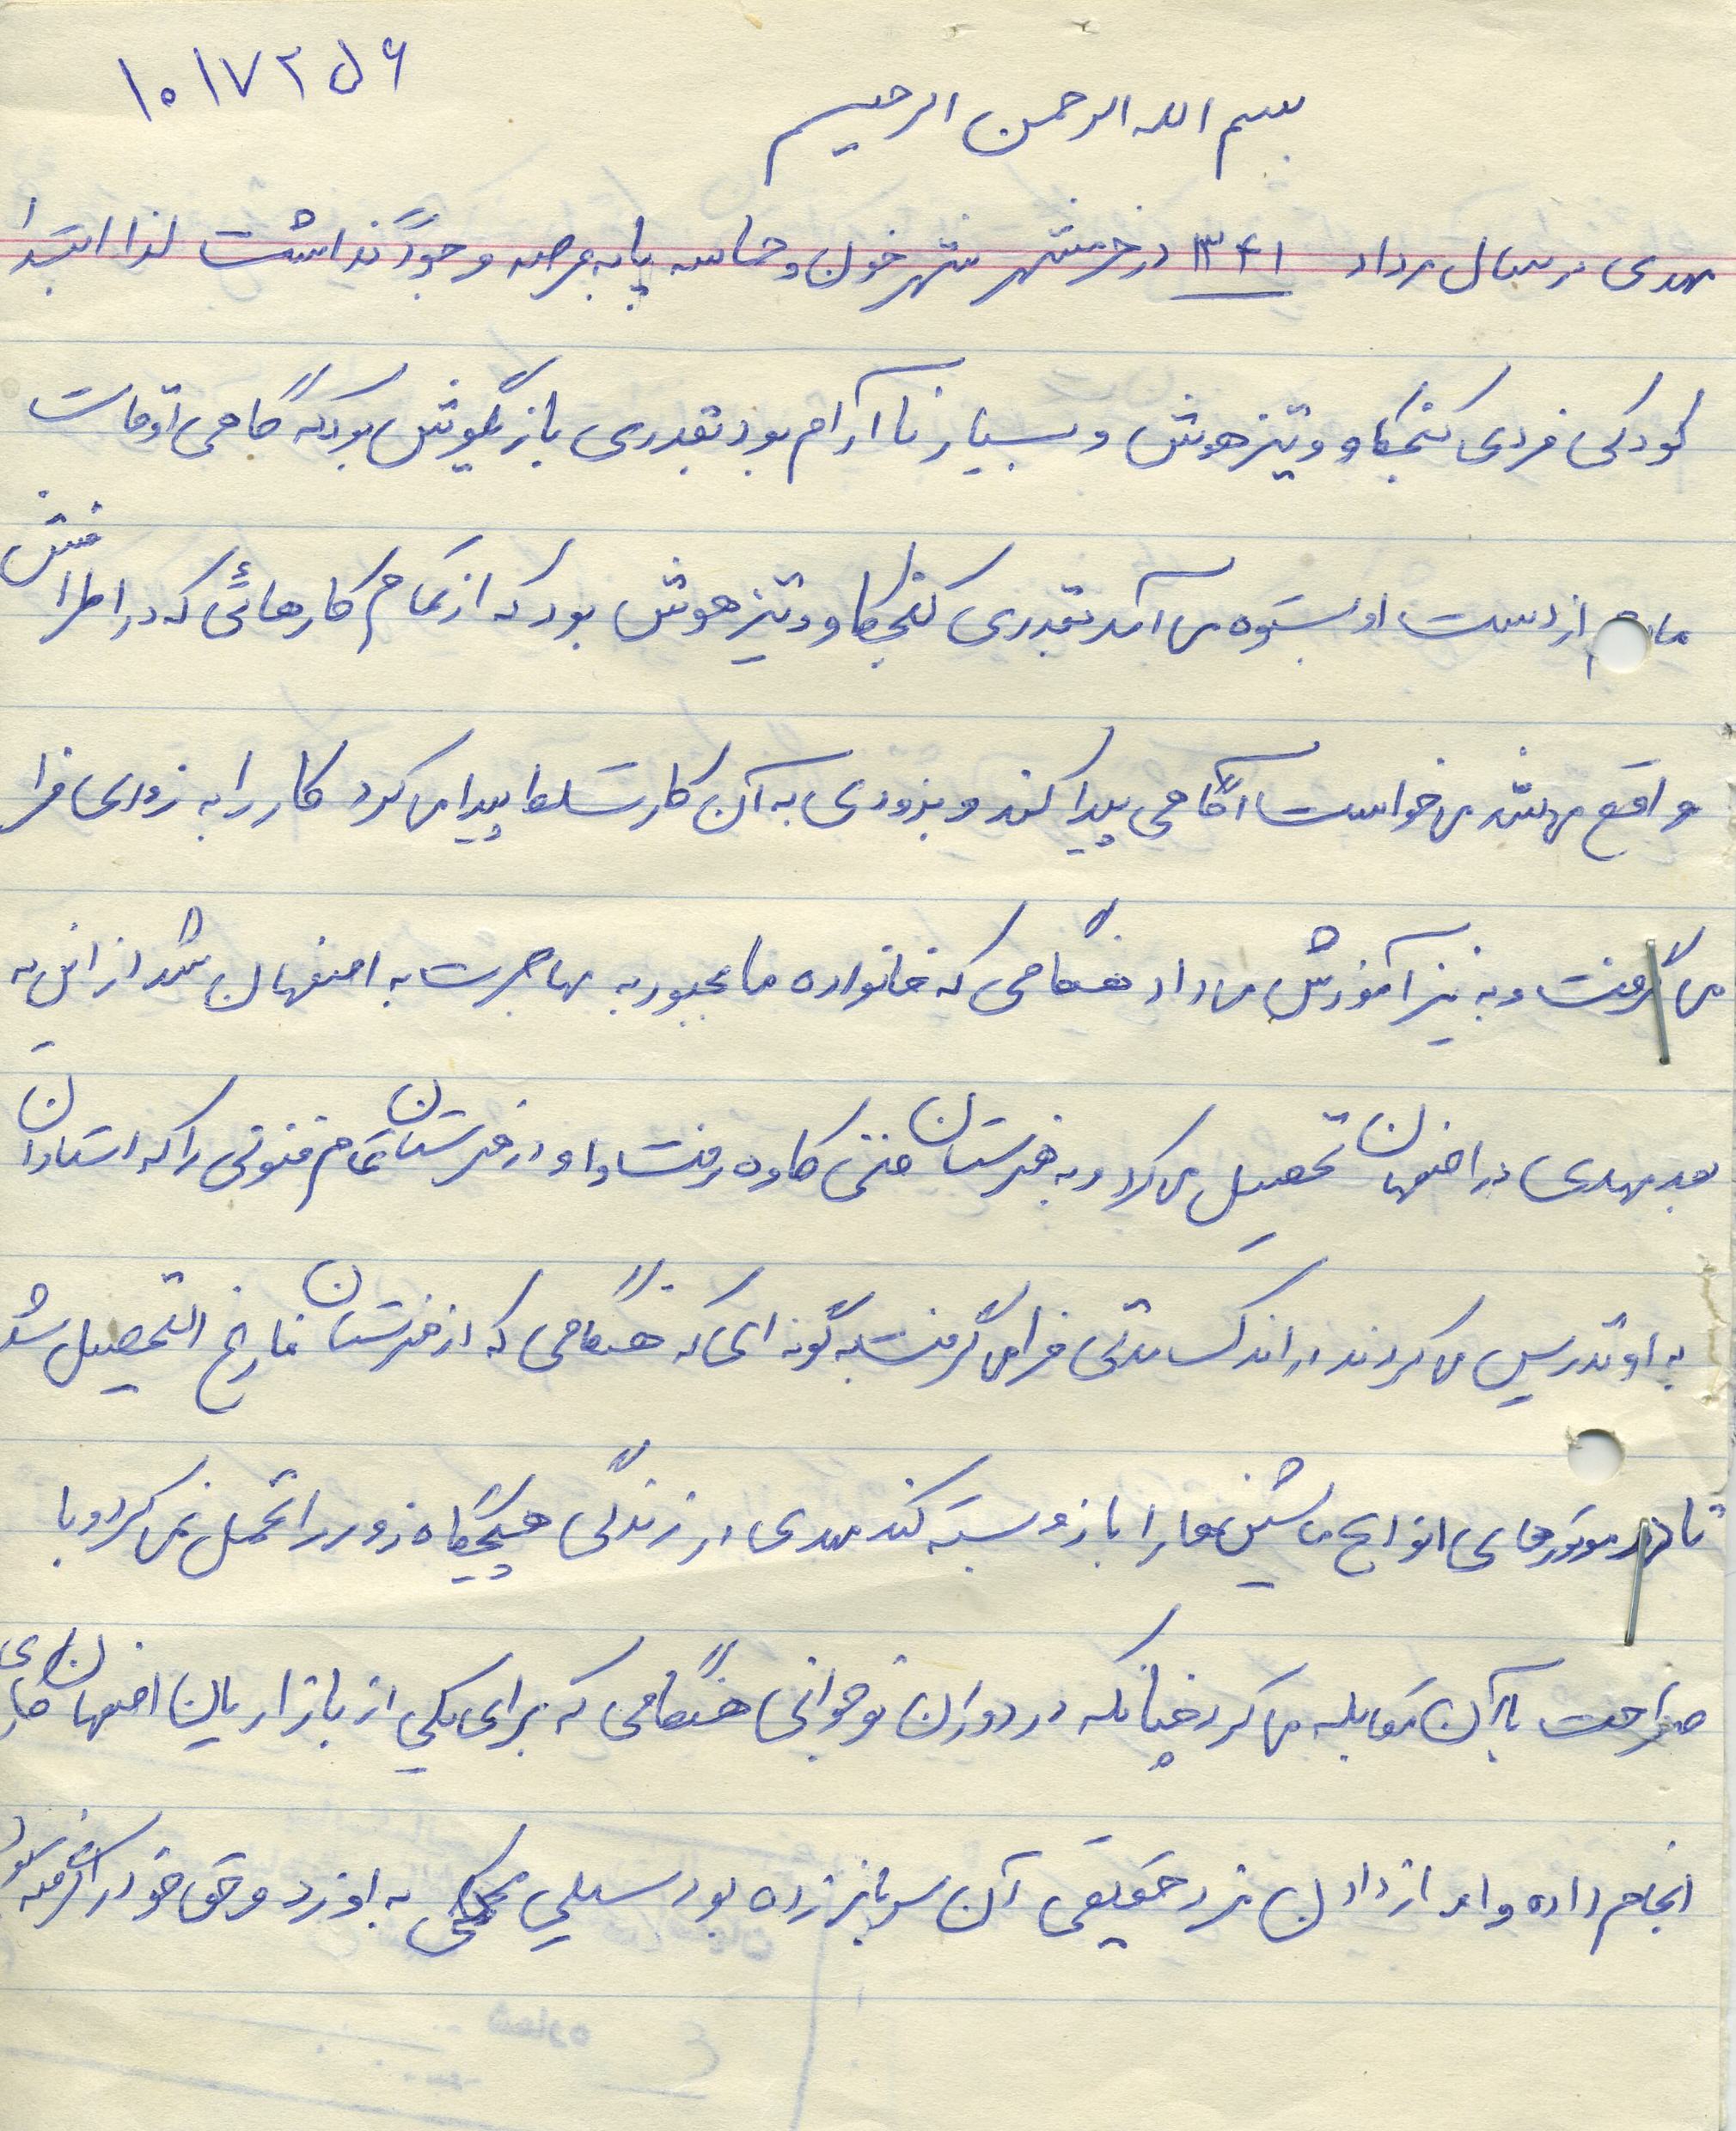 ۱۰۱۷۲۵۶
بسم الله الرحمن الرحیم
مهدی در سال مرداد ۱۳۴۱ در خرمشهر شهر خون و حماسه پا به عرصه وجود گذاشت لذا ابتدا
کودکی فردی کنجکاو و تیزهوش و بسیار نا آرام بود بقدری بازیگوش بود که گاهی اوقات
مادرم از دست او بستوه می آمد بقدری کنجکاو و تیزهوش بود که از تمام کارهائی که در اطرافش
واقع میشد می خواست آگاهی پیدا کند و بزودی به آن کار تسلط پیدا می کرد کار را به زودی فرا
می گرفت و به نیز آموزش می داد هنگامی که خانواده ما مجبور به مهاجرت به اصفهان شد از این به
بعد مهدی در اصفهان تحصیل می کرد و به هنرستان فنی کاوه رفت و او در هنرستان تمام فنونی را که استادان
به او تدریس می کردند در اندک مدتی فرا می گرفت به گونه ای که هنگامی که از هنرستان فارغ التحصیل شد
قادر موتورهای انواع ماشین ها را باز و بسته کند مهدی در زندگی هیچگاه زور را تحمل نمی کرد و با
صراحت با آن مقابله می کرد چنانکه در دوران نوجوانی هنگامی که برای یکی از بازاریان اصفهان کاری
انجام داده و او از دادن مزد حقیقی آن سرباز زده بود سیلی محکمی به او زد و حق خود را گرفته بود